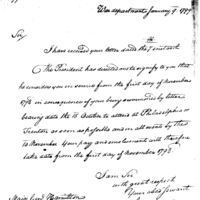 War department January 9. 1799
Sir
I have received your letter dated the 7 instant.
The President has directed me to signify to you that
he considers you in service from the first day of November
1798 in consequence of your being summoned by letter
bearing date the to attend at Philadelphia or
Trenton as soon as possible and in all events by the
10 November Your pay and emoluments will therefore
take date from the first day of November 1798.
I am Sir
with great respect
Your obed Servant
Major Genl Hamilton